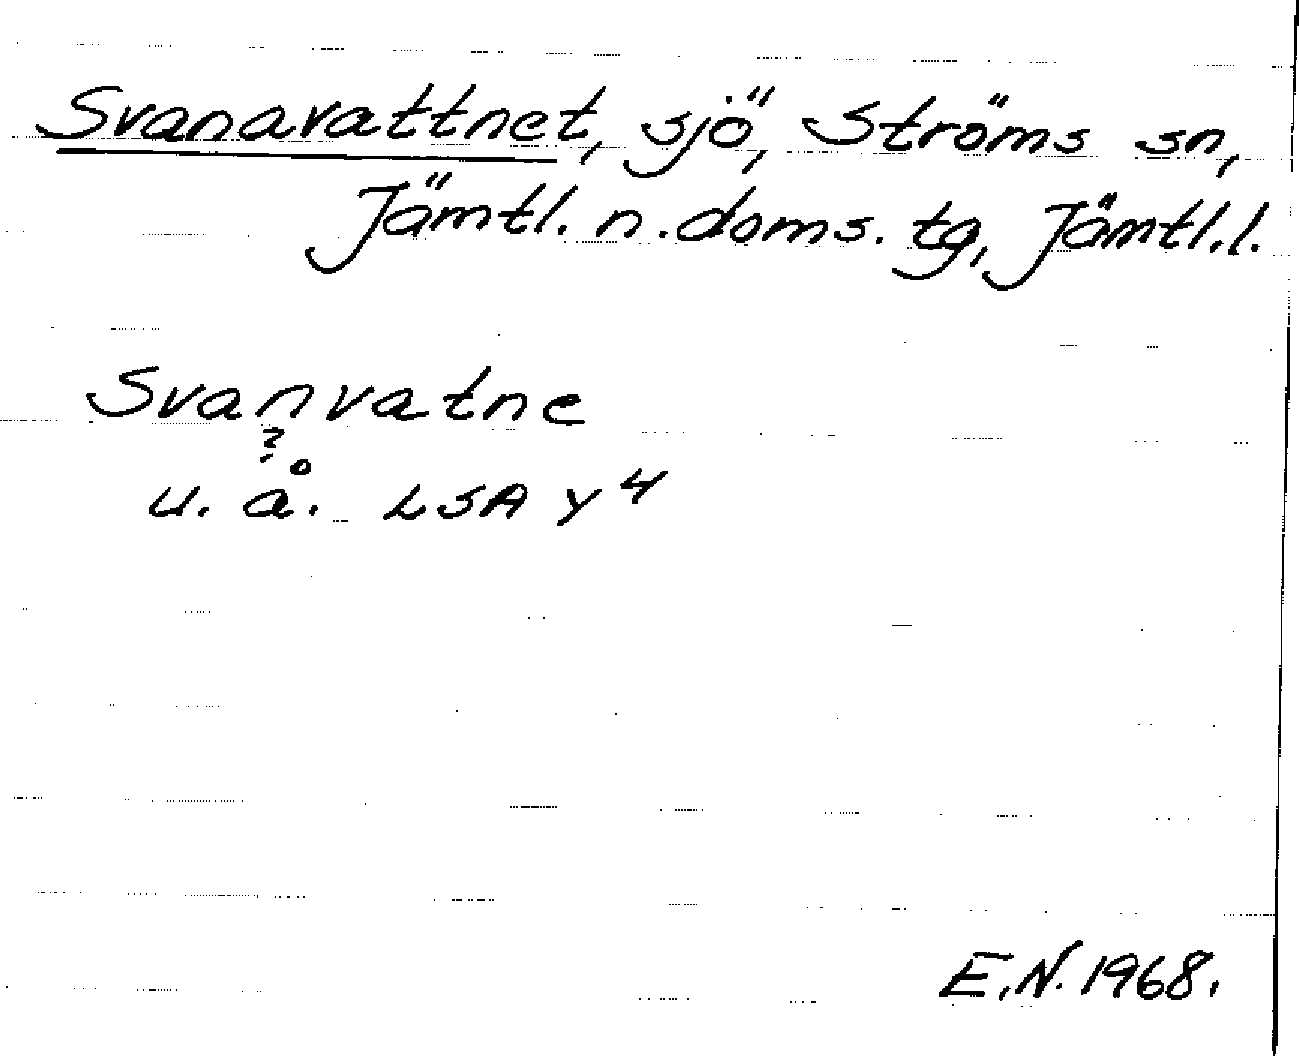 Svanavattnet, sjö, Ströms sn,
Jämtl. n. doms. tg, Jämtl. l.
Svanvatne
?
u. å. LSA Y 4
E.N. 1968.